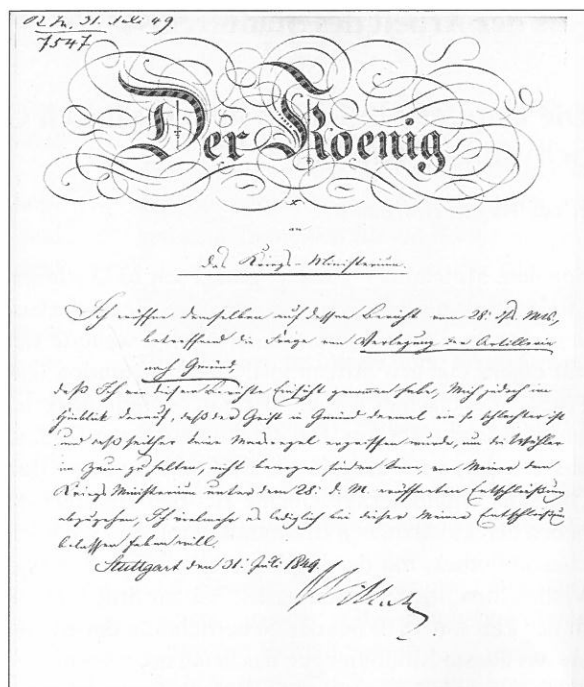 31. Juli 49.
7547
Der Koenig
an
das Kriegs-Ministerium.
Ich eröffne demselben auf dessen Bericht vom 28: dß. Mts,
betreffend die Frage von Verlegung der Artillerie
nach Gmünd,
daß Ich von diesem Berichte Einsicht genommen habe, Mich jedoch im
Hinblick darauf, daß der Geist in Gmünd dermal ein so schlechter ist
und daß seither keine Masregel ergriffen wurde, um die Wühler
im Zaum zu halten, nicht bewogen finden kann, von Meiner dem
Kriegs Ministerium unter dem 28: d. M. eröffneten Entschließung
abzugehen, Ich vielmehr es lediglich bei dieser Meiner Entschließung
belassen haben will.
Stuttgart den 31: Juli 1849.